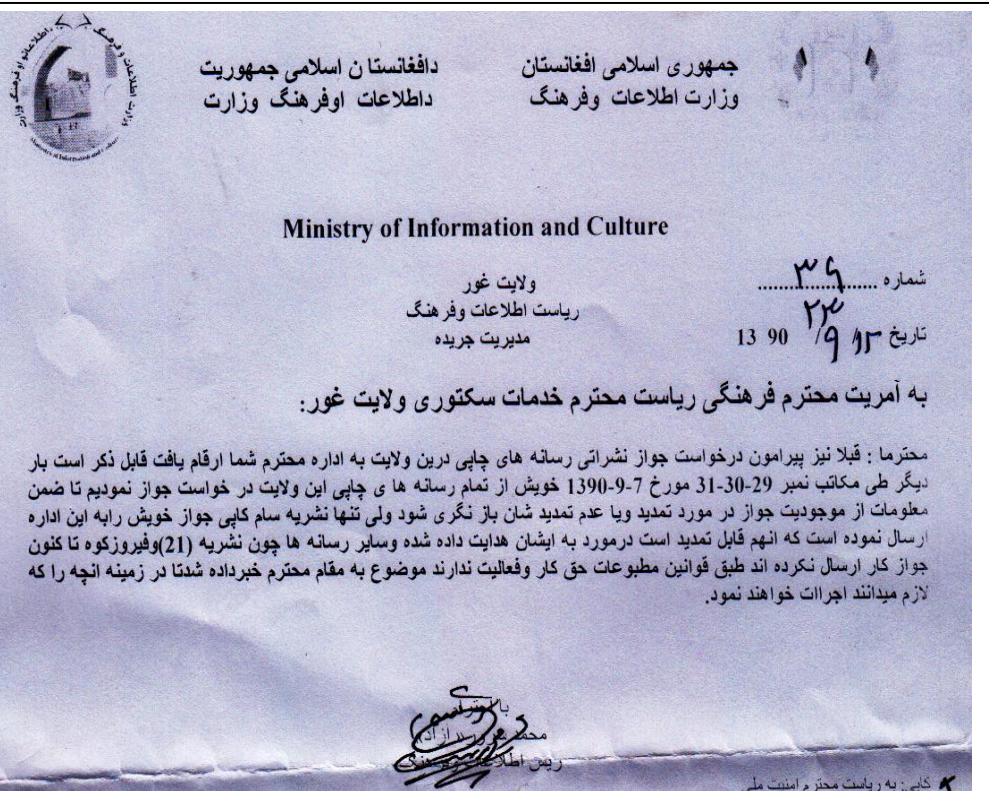 جمهوری اسلامی افغانستان
وزارت اطلاعات وفرهنگ
دافغانستان اسلامی جمهوریت
داطلاعات اوفرهنگ وزارت
Ministry of Information and Culture
ولایت غور
ریاست اطلاعات وفرهنگ
مدیریت جریده
شماره ....۳۹....
تاریخ ۲۳/۹ 13 90
به آمریت محترم فرهنگی ریاست محترم خدمات سکتوری ولایت غور:
محترما : قبلا نیز پیرامون درخواست جواز نشراتی رسانه های چاپی درین ولایت به اداره محترم شما ارقام یافت قابل ذکر است بار
دیگر طی مکاتب نمبر 29-30-31 مورخ 7-9-1390 خویش از تمام رسانه ها ی چاپی این ولایت در خواست جواز نمودیم تا ضمن
معلومات از موجودیت جواز در مورد تمدید ویا عدم تمدید شان باز نگری شود ولی تنها نشریه سام کاپی جواز خویش رابه این اداره
ارسال نموده است که انهم قابل تمدید است درمورد به ایشان هدایت داده شده وسایر رسانه ها چون نشریه (21)وفیروزکوه تا کنون
جواز کار ارسال نکرده اند طبق قوانین مطبوعات حق کار وفعالیت ندارند موضوع به مقام محترم خبرداده شدتا در زمینه انچه را که
لازم میدانند اجراات خواهند نمود.
با
محمد
ریس اطلاعات
کاپی: به ریاست محترم امنیت ملی